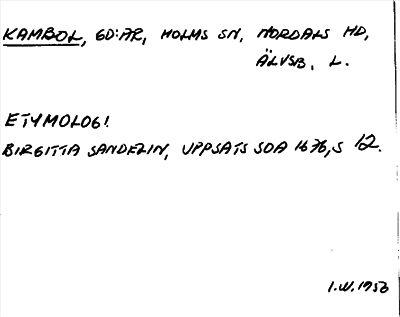 KAMBOL, GD:AR, HOLMS SN, NORDALS HD,
ÄLVSB. L.
ETYMOLOGI
BIRGITTA SANDELIN, UPPSATS SOA 1676, S 12.
I.W. 1956